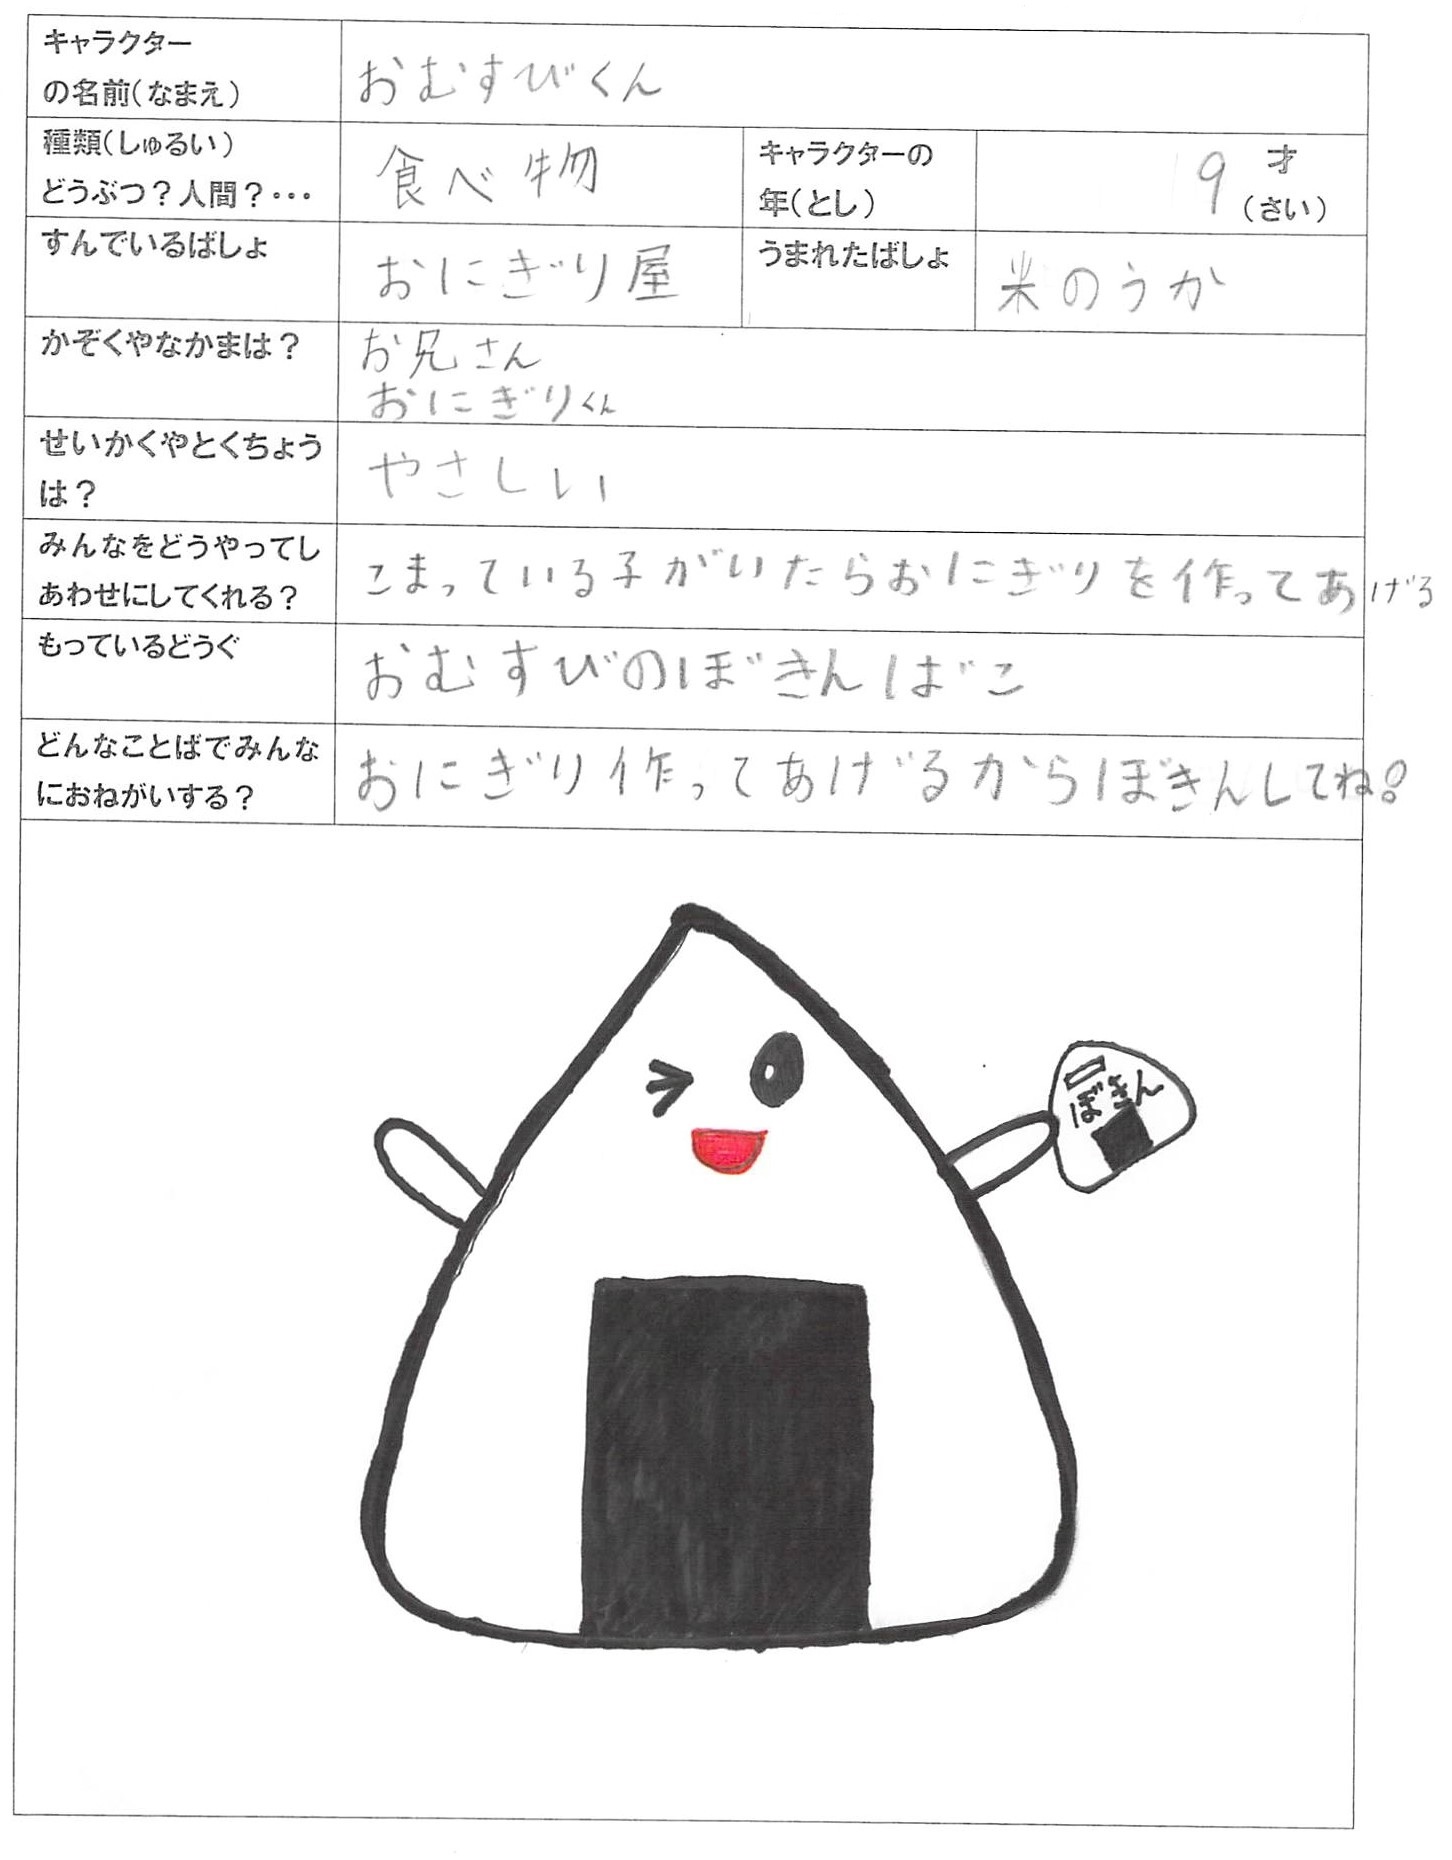 キャラクター
の名前(なまえ)
おむすびくん
種類(しゅるい)
どうぶつ?人間?・・・
食べ物
キャラクターの
年(とし)
9
才
(さい)
すんでいるばしょ
おにぎり屋
うまれたばしょ
米のうか
かぞくやなかまは?
お兄さん
おにぎりくん
せいかくやとくちょう
は?
やさしい
みんなをどうやってし
あわせにしてくれる?
こまっている子がいたらおにぎりを作ってあげる
もっているどうぐ
おむすびのぼきんばこ
どんなことばでみんな
におねがいする?
おにぎり作ってあげるからぼきんしてね!
ぼきん